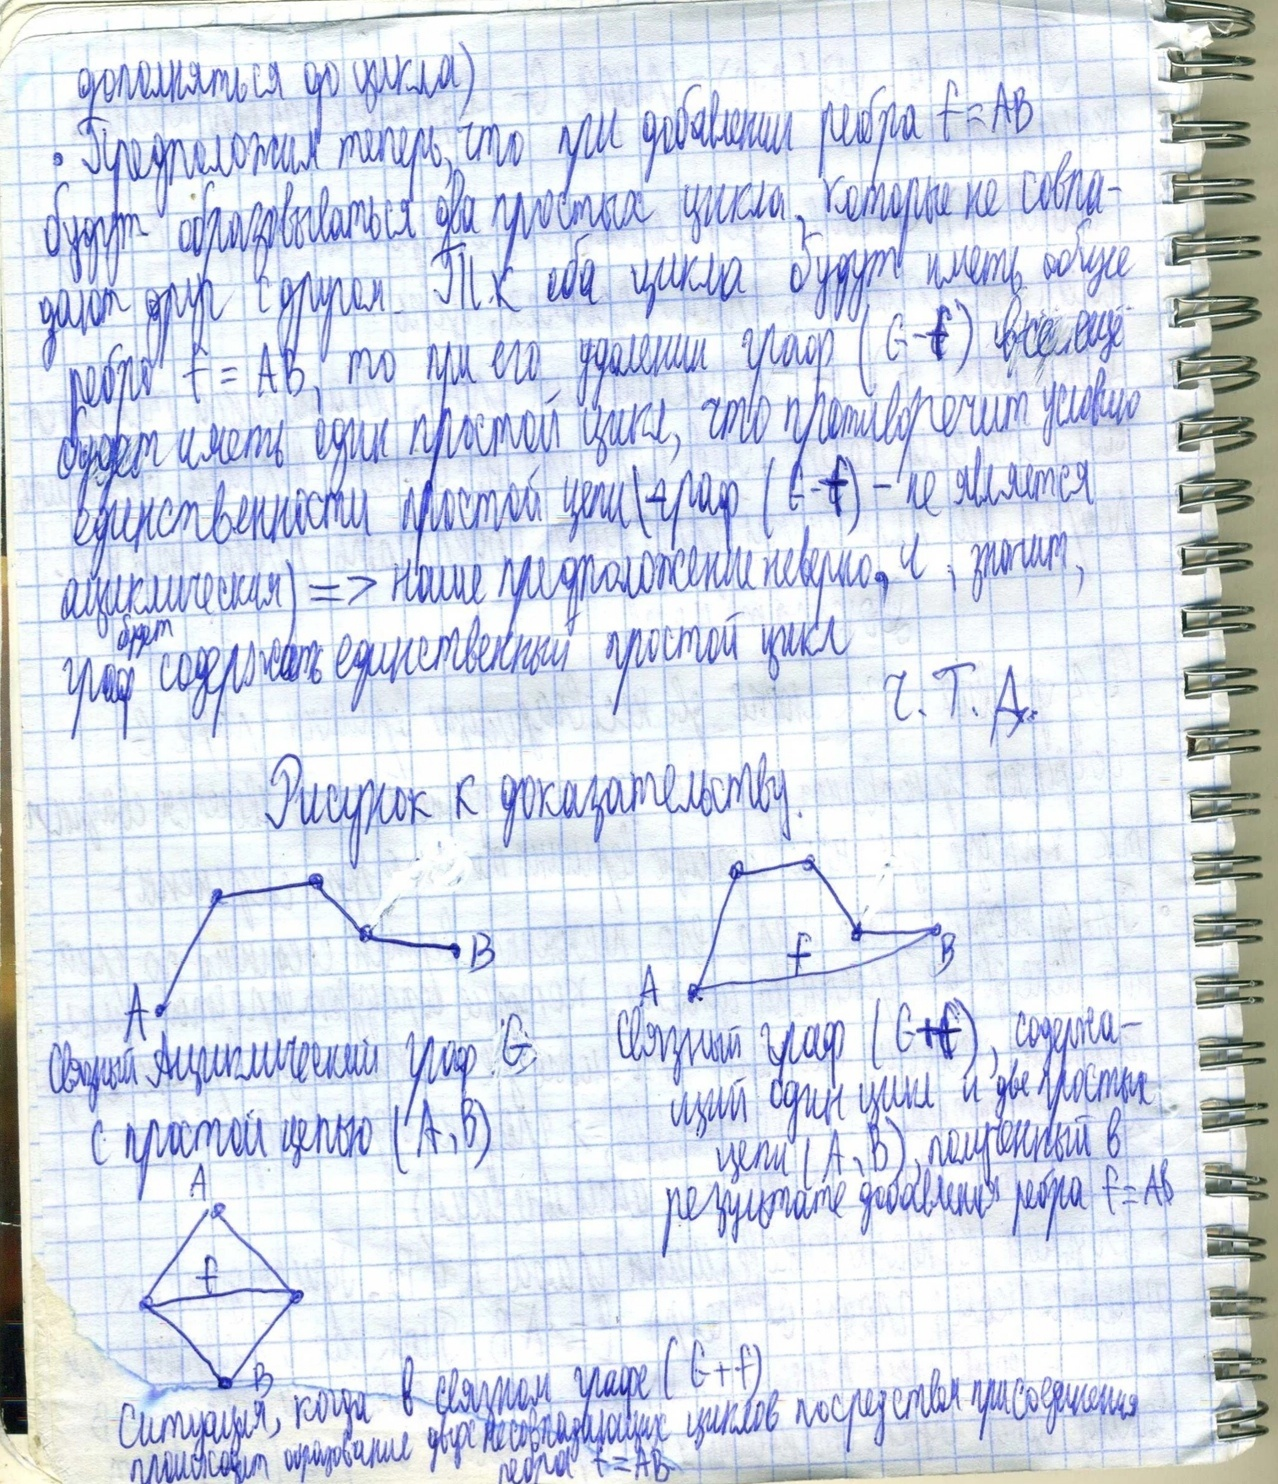 дополняться до цикла)
• Предположим теперь, что при добавлении ребра f = AB
будут образовываться два простых цикла, которые не совпа-
дают друг с другом. Т.к оба цикла будут иметь общее
ребро f = AB, то при его удалении граф (G-f) всё ещё
будет иметь один простой цикл, что противоречит условию
единственности простой цепи (граф (G-f) - не является
ациклическим) => наше предположение неверно, и, значит,
будет
граф содержать единственный простой цикл
Ч.Т.Д.
Рисунок к доказательству.
A
B
f
A
B
Связный Ациклический граф G
с простой цепью (A, B)
Связный граф (G+f), содержа-
щий один цикл и две простых
цепи (A, B), полученный в
результате добавления ребра f = AB
A
f
B
Ситуация, когда в связном графе (G+f)
происходит образование двух несовпадающих циклов посредством присоединения
ребра f = AB